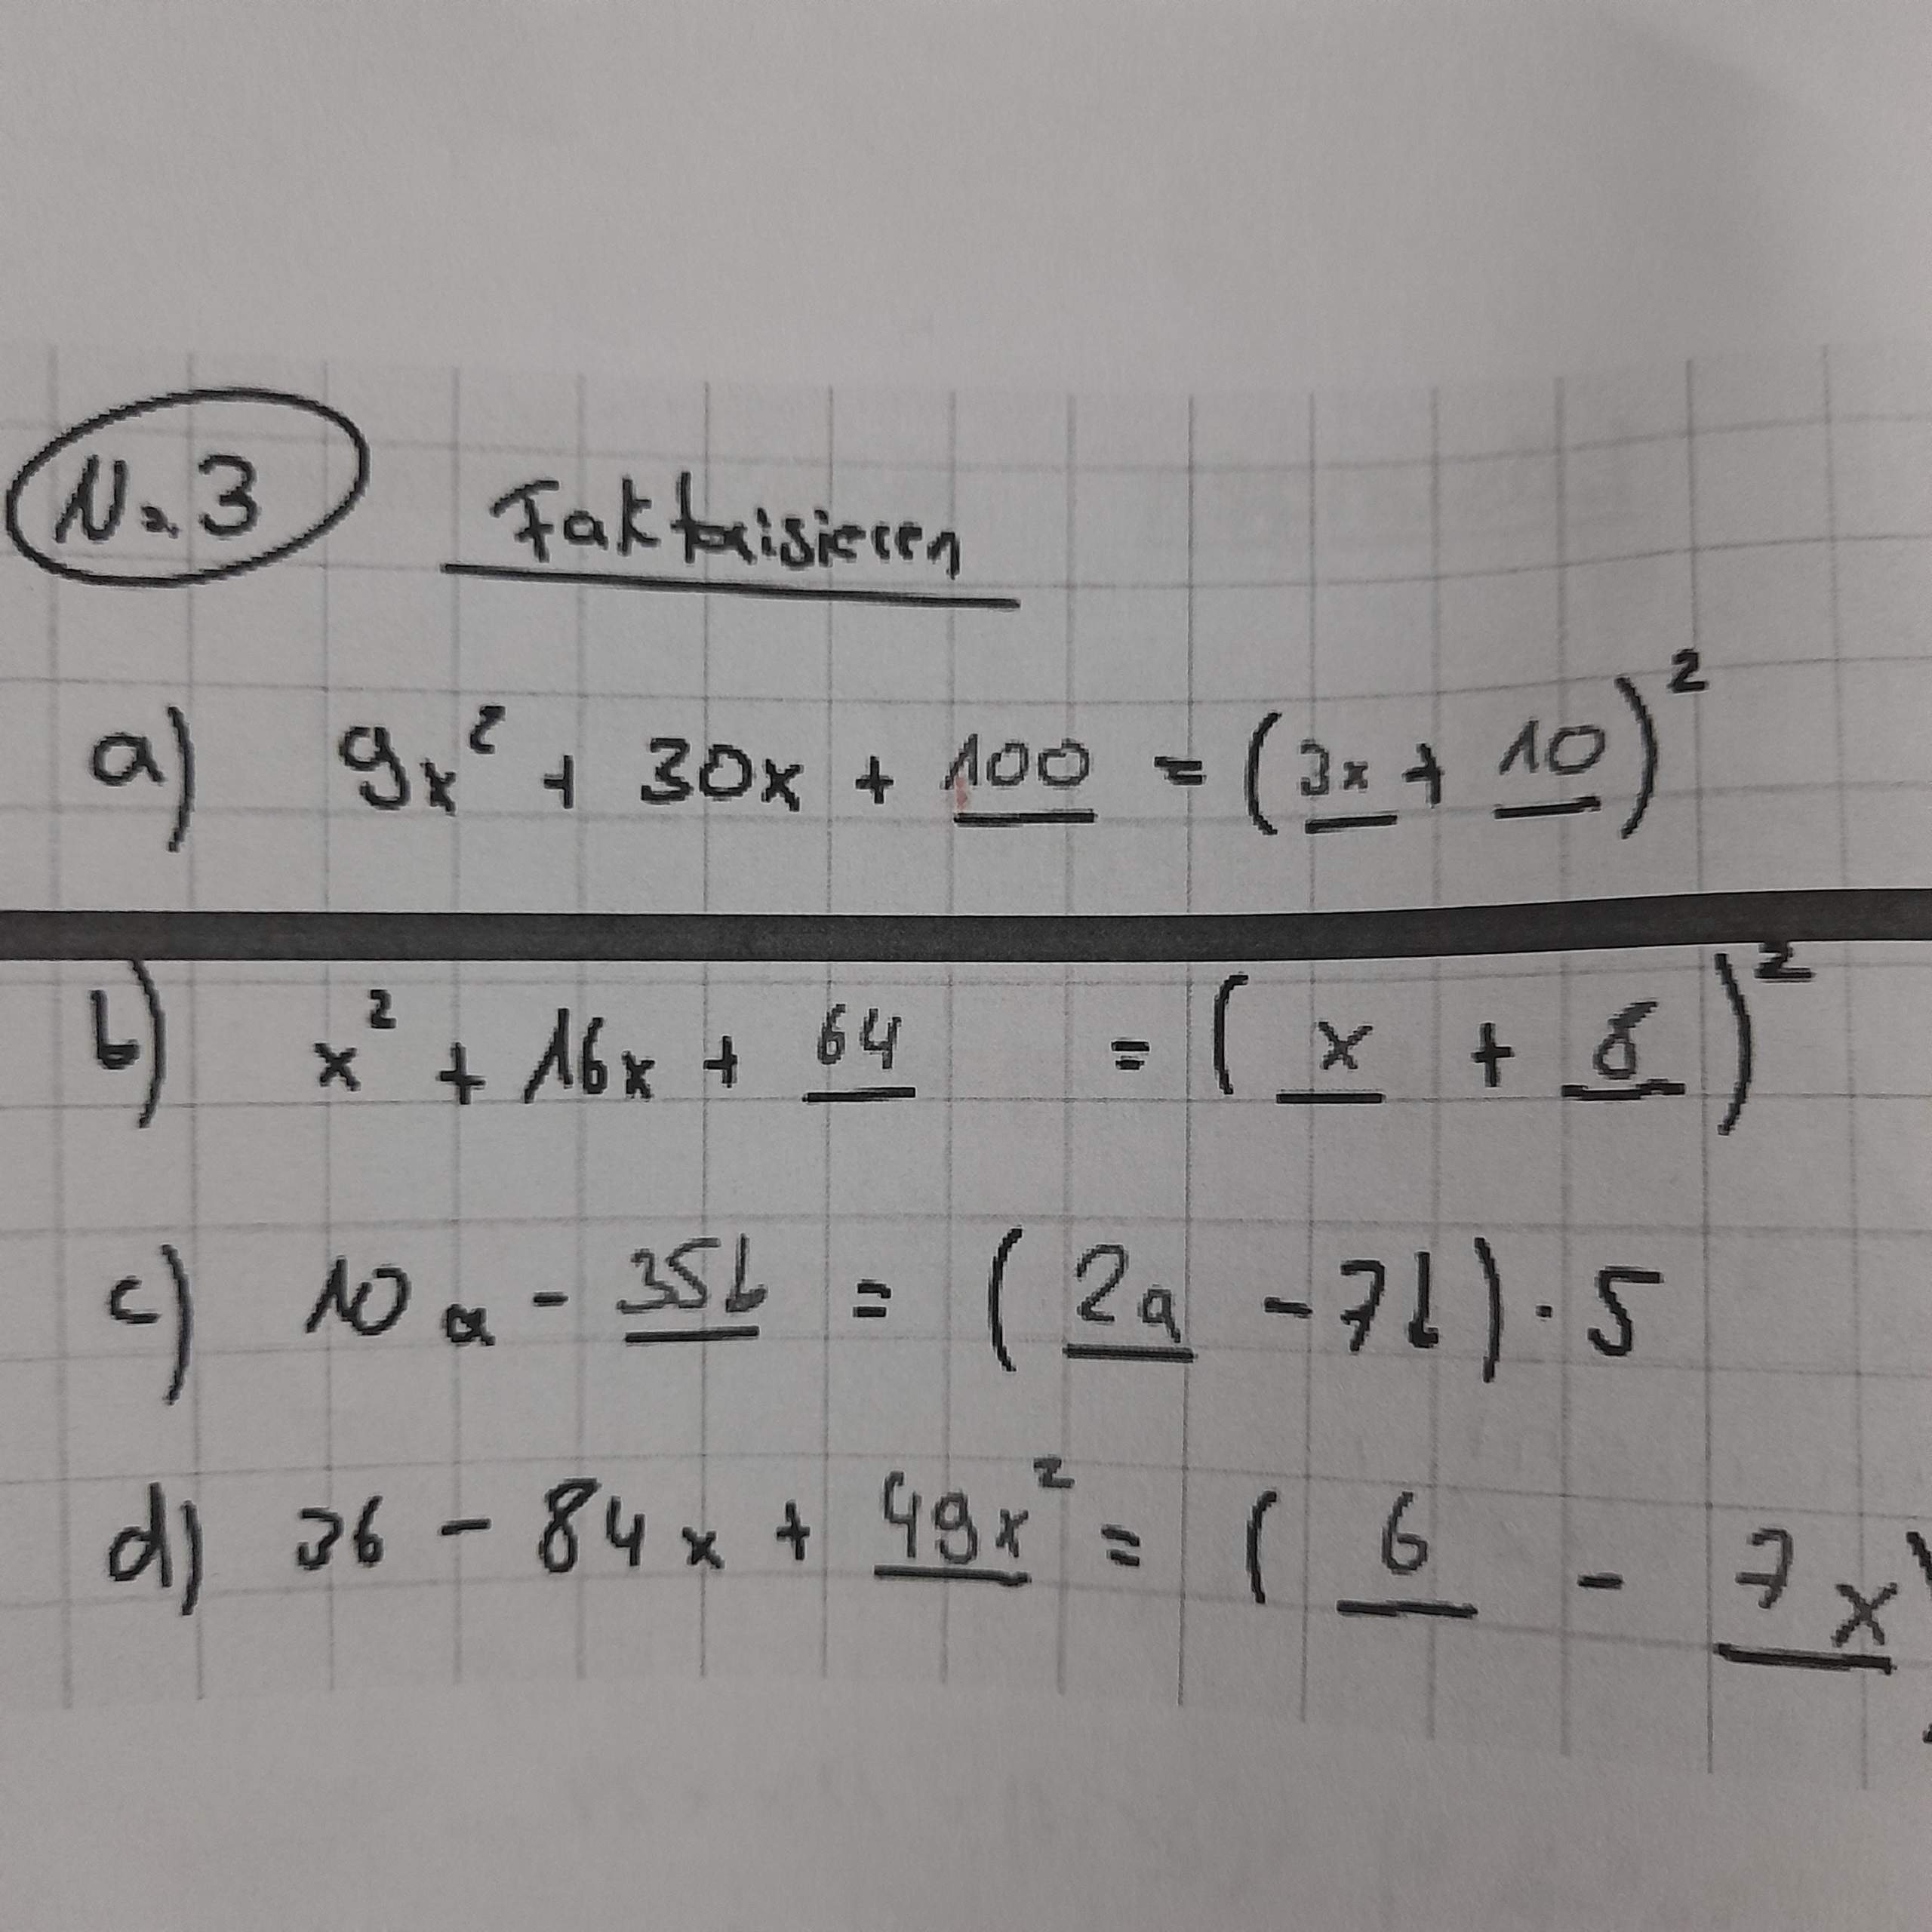 Nr. 3 Faktorisieren
a) 9x² + 30x + 100 = (3x + 10)²
b) x² + 16x + 64 = (x + 8)²
c) 10a - 35b = (2a - 7b) · 5
d) 36 - 84x + 49x² = (6 - 7x)